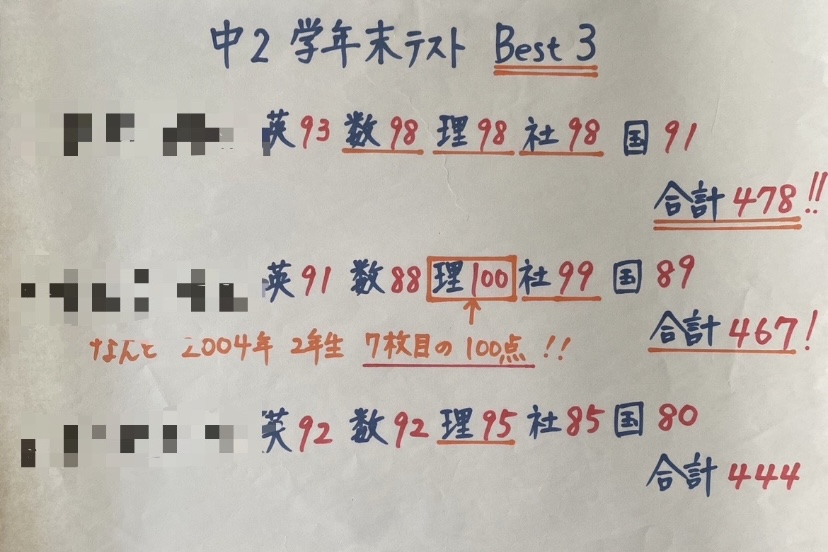 中2 学年末テスト Best 3
英93 数98 理98 社98 国91
合計478!!
英91 数88 理100 社99 国89
合計467!
なんと 2004年 2年生 7枚目の100点!!
英92 数92 理95 社85 国80
合計444